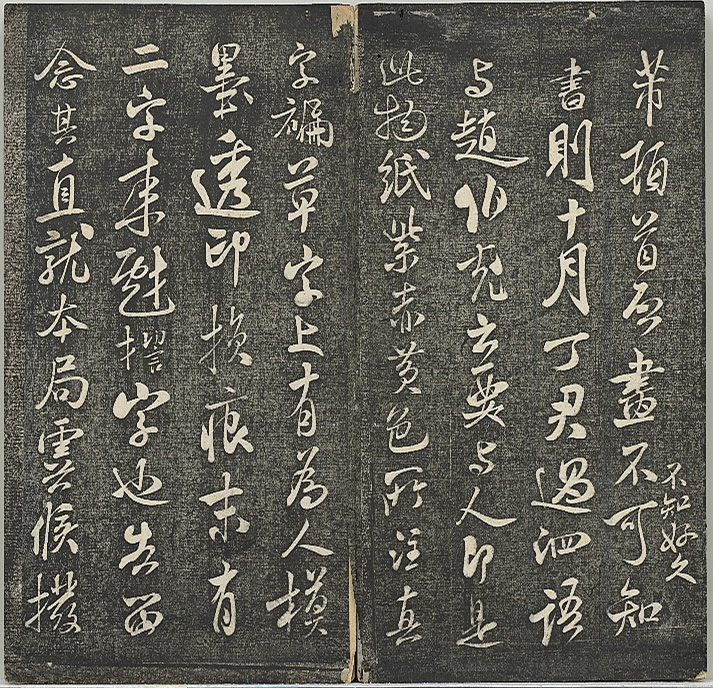 芾頓首啟畫不可知
不知好久
書則十月丁君過泗語
與趙伯充云要與人即是
此物紙紫赤黃色所注真
字褊草字上有為人模
墨透印損痕末有
二字來字也告留
念其直就本局虞候撥